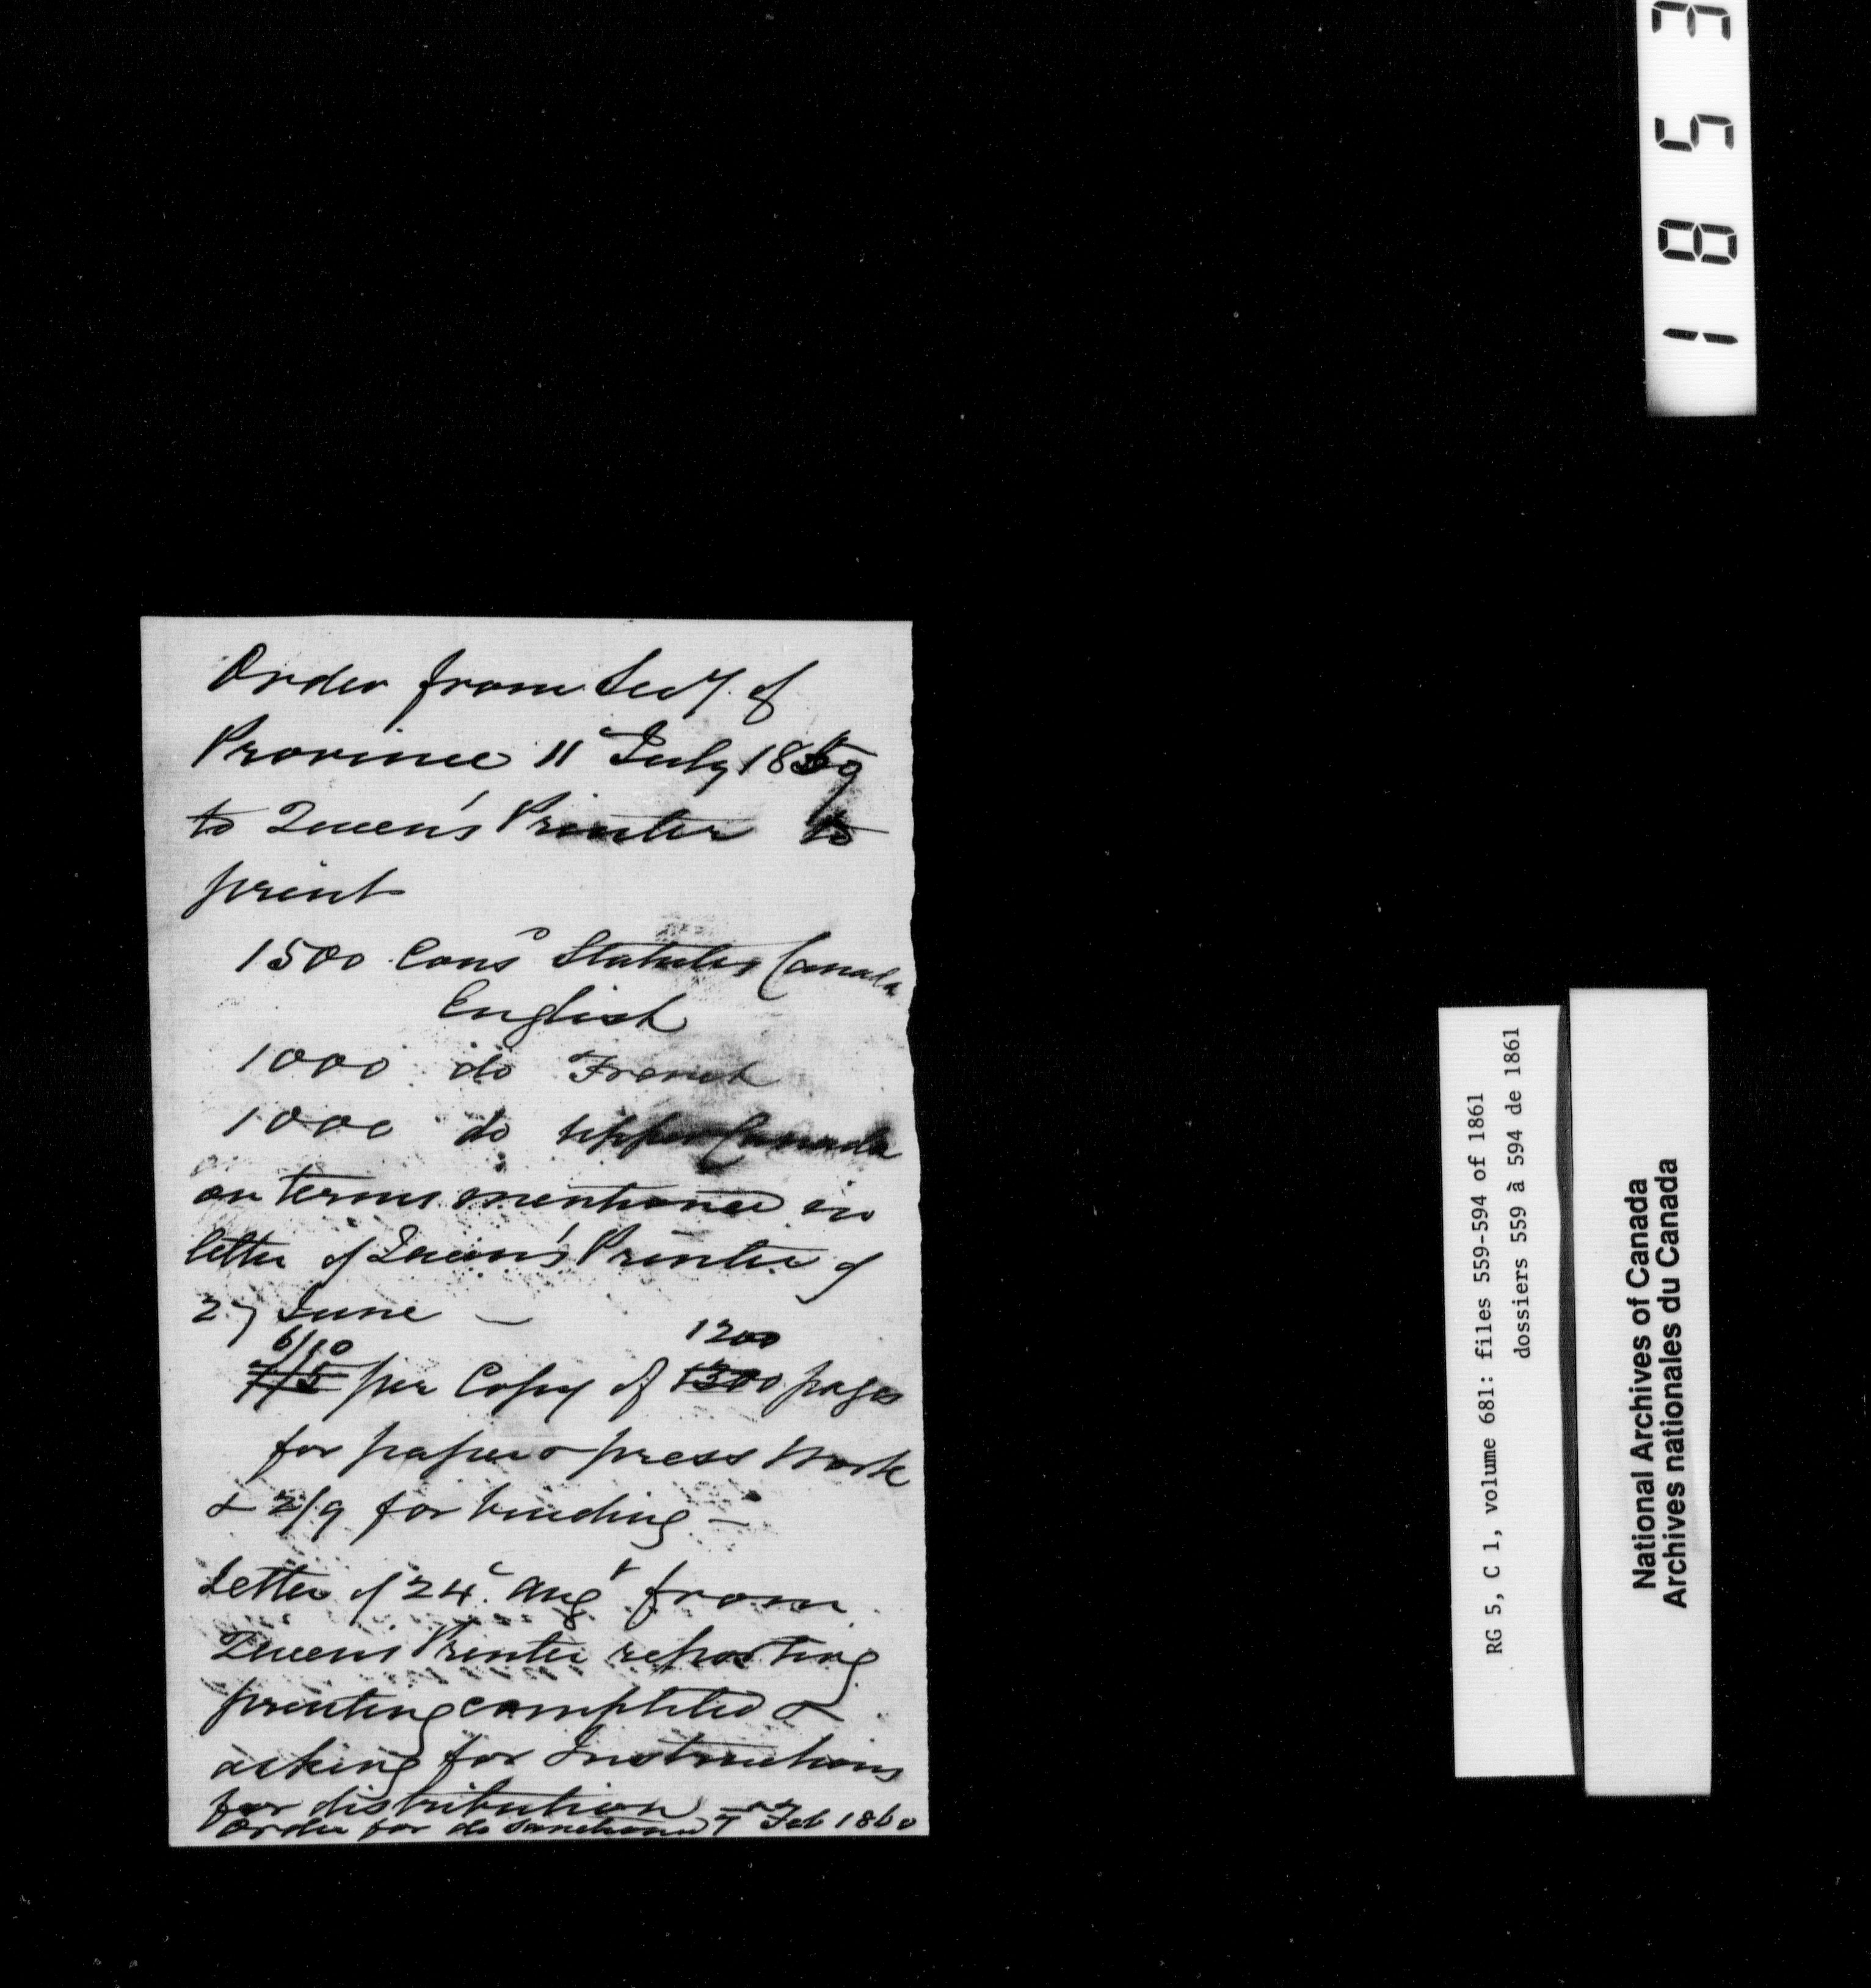 Order from Secy. of
Province 11 July 1859
to Queen's Printer to
print
1500 Consd Statutes Canada
English
1000 do French
1000 do Upper Canada
on terms mentioned in
letter of Queen's Printer of
27 June —
6/10 1200
7/5 per Copy of 1300 pages
for paper & press work
& 2/9 for binding —
Letter of 24. Augt from
Queens Printer reporting
printing completed &
asking for Instructions
for distribution
Order for do sanctioned 7 Feb 1860
1853
RG 5, C 1, volume 681: files 559-594 of 1861
dossiers 559 à 594 de 1861
National Archives of Canada
Archives nationales du Canada